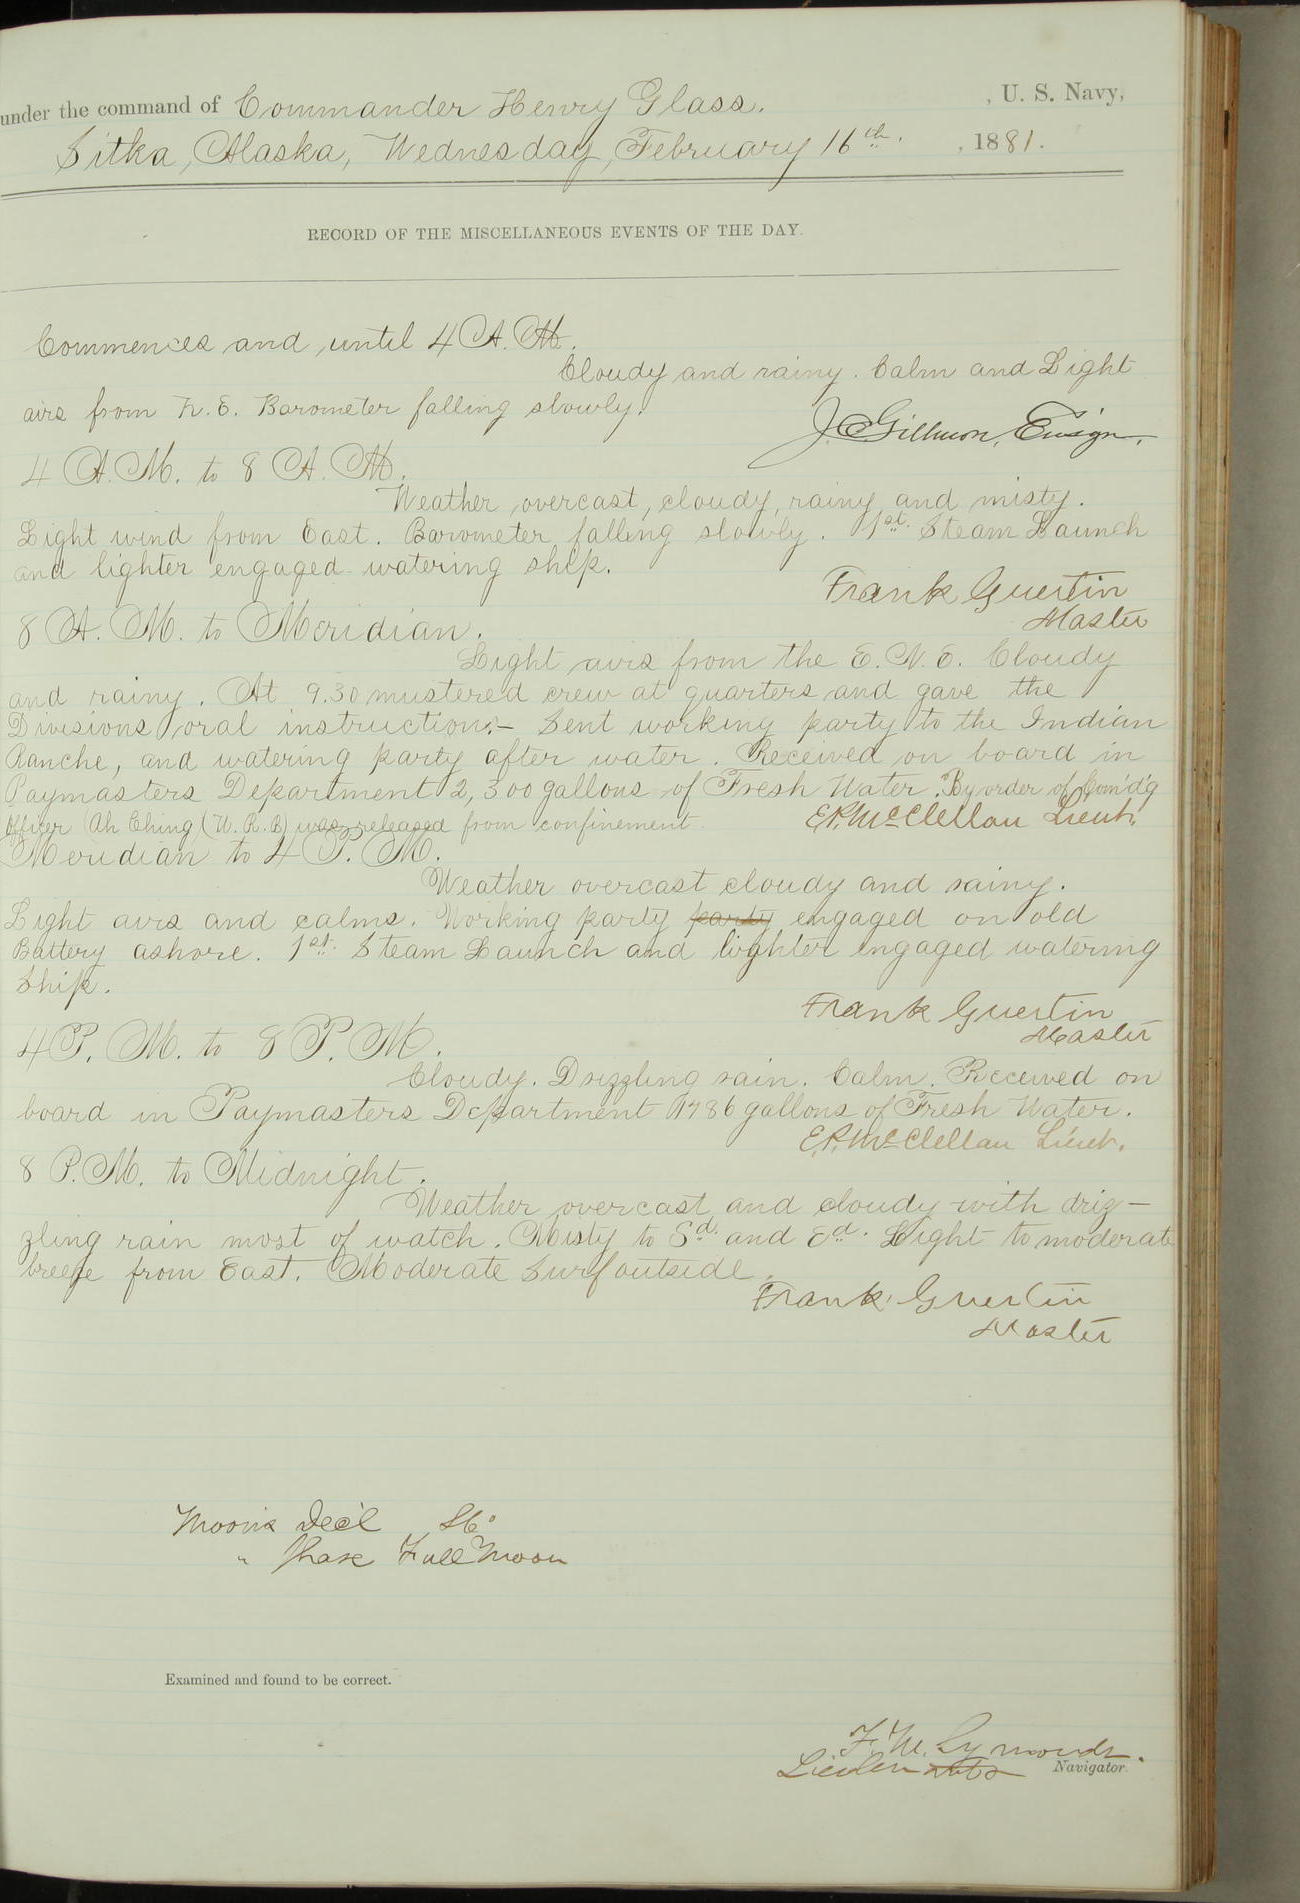 under the command of Commander Henry Glass. , U. S. Navy,
Sitka, Alaska, Wednesday, February 16th. , 1881.
RECORD OF THE MISCELLANEOUS EVENTS OF THE DAY.
Commences and until 4 A. M.
Cloudy and rainy. Calm and Light
airs from N. E. Barometer falling slowly.
J. C. Gillmore, Ensign.
4 A. M. to 8 A. M.
Weather overcast, cloudy, rainy and misty.
Light wind from East. Barometer falling slowly. 1st Steam Launch
and lighter engaged watering ship.
Frank Guertin
Master
8 A. M. to Meridian.
Light airs from the E. N. E. Cloudy
and rainy. At 9.30 mustered crew at quarters and gave the
Divisions oral instruction:– Sent working party to the Indian
Ranche, and watering party after water. Received on board in
Paymasters Department 2,300 gallons of Fresh Water. By order of Com'd'g
Officer Ah Ching (W. R. B) was released from confinement
E. P. McClellan Lieut.
Meridian to 4 P. M.
Weather overcast cloudy and rainy.
Light airs and calms. Working party party engaged on old
Battery ashore. 1st Steam Launch and lighter engaged watering
Ship.
Frank Guertin
Master
4 P. M. to 8 P. M.
Cloudy. Drizzling rain. Calm. Received on
board in Paymasters Department 1786 gallons of Fresh Water.
E. P. McClellan Lieut.
8 P. M. to Midnight.
Weather overcast and cloudy with driz–
zling rain most of watch. Misty to Sd. and Ed. Light to moderate
breeze from East. Moderate Surf outside.
Frank Guertin
Master
Moon's Dec'l
" Phase Full Moon
Examined and found to be correct.
F. M. Symonds.
Lieutenant Navigator.